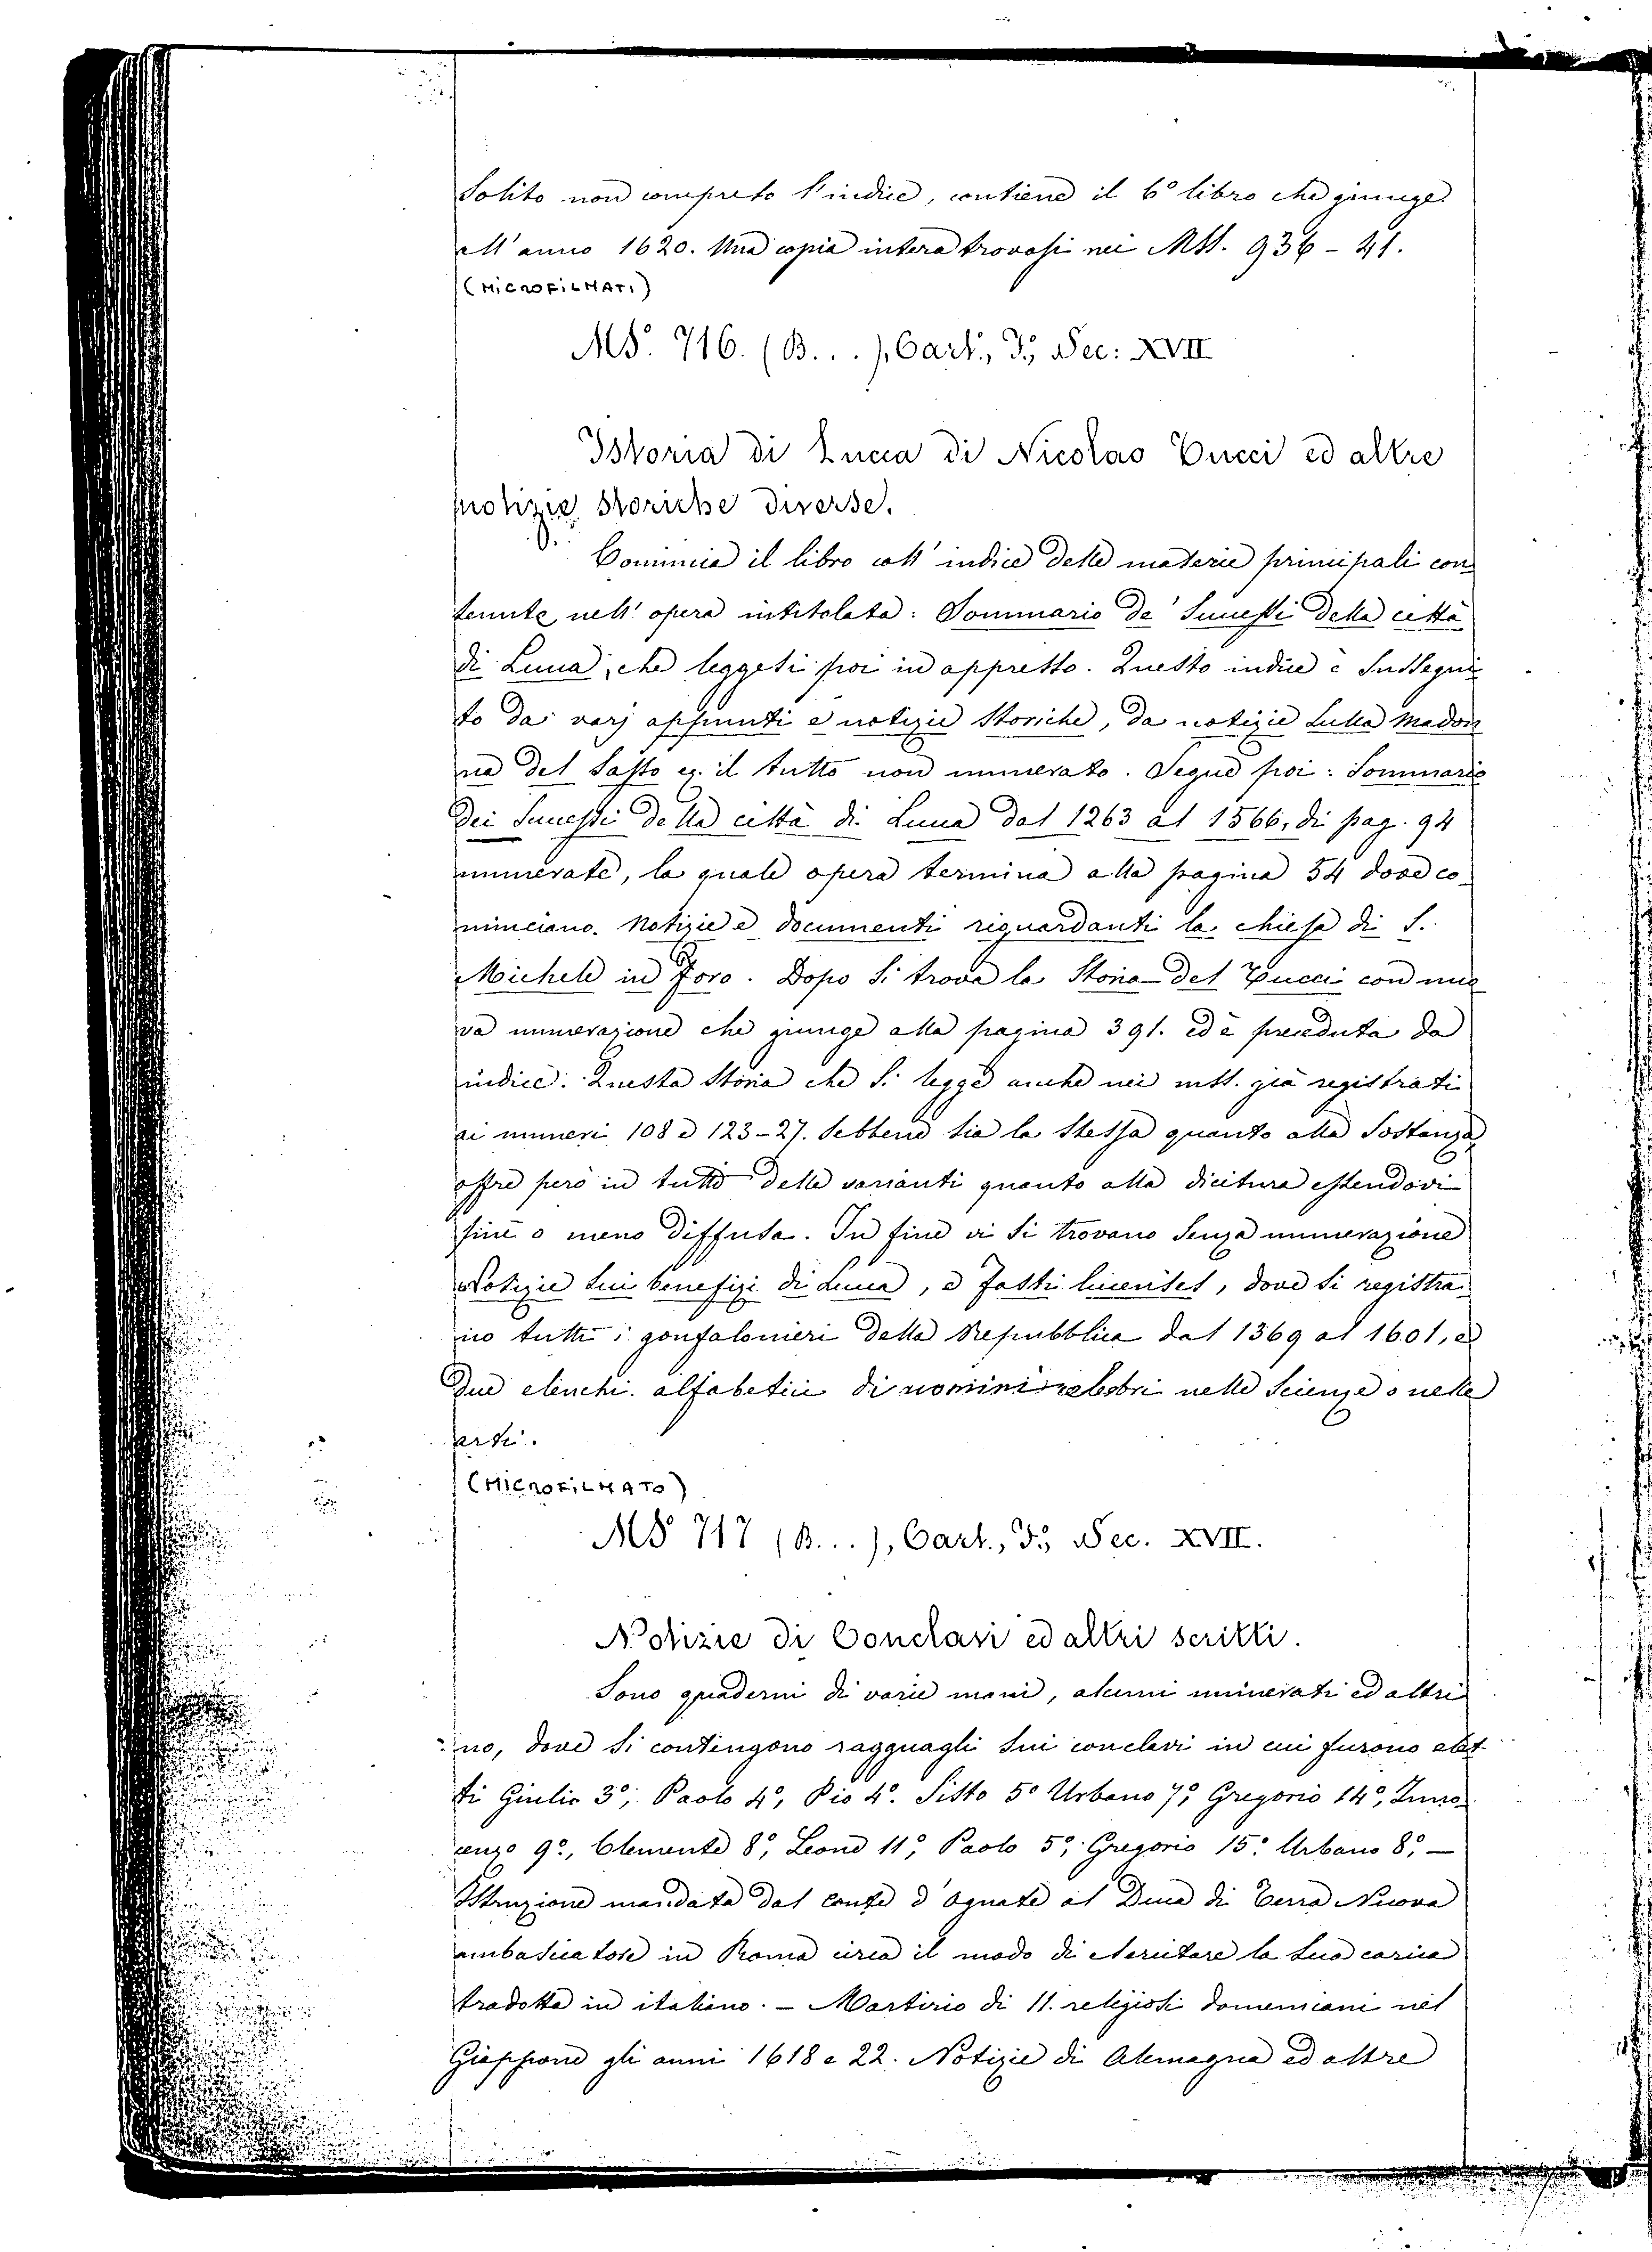 solito non compreto l'indice, contiene il 6º libro che giunge
all'anno 1620. Una copia intera trovasi nei Mss. 936-41.
(MICROFILMATI)
MS. 716. (B...), Cart., F., Sec: XVII
Istoria di Lucca di Nicolao Tucci ed altre
notizie storiche diverse.
Comincia il libro coll'indice delle materie principali con
tenute nell'opera intitolata: Sommario de' Successi della città
di Lucca, che leggesi poi in appresso. Questo indice è sussegui
to da varj appunti e notizie storiche, da notizie sulla Madon
na del Sasso e. il tutto non numerato. Segue poi: Sommario
dei Successi della città di Lucca dal 1263 al 1566, di pag. 94
numerate, la quale opera termina alla pagina 54 dove co
minciano. Notizie e documenti riguardanti la chiesa di S.
Michele in Foro. Dopo si trova la Storia del Tucci con nuo
va numerazione che giunge alla pagina 391. ed è preceduta da
indice. Questa storia che si legge anche nei mss. già registrati
ai numeri 108 e 123-27. Sebbene sia la stessa quanto alla sostanza,
offre però in tutto delle varianti quanto alla dicitura essendovi
più o meno diffusa. In fine vi si trovano senza numerazione
Notizie sui benefizi di Lucca, e Fasti lucenses, dove si registra
no tutti i gonfalonieri della Repubblica dal 1369 al 1601, e
due elenchi alfabetici di uomini celebri nelle Scienze o nelle
arti.
(MICROFILMATO)
MS 717 (B...), Cart., F., Sec. XVII.
Notizie di Conclavi ed altri scritti.
Sono quaderni di varie mani, alcuni numerati ed altri
no, dove si contengono ragguagli sui conclavi in cui furono elet
ti Giulio 3º, Paolo 4º, Pio 4º. Sisto 5º Urbano 7º, Gregorio 14º, Inno
cenzo 9º, Clemente 8º, Leone 11º, Paolo 5º, Gregorio 15º Urbano 8º. —
Istruzione mandata dal conte d'Ognate al Duca di Terra Nuova
ambasciatore in Roma circa il modo di esercitare la sua carica
tradotta in italiano. — Martirio di 11. religiosi domenicani nel
Giappone gli anni 1618 e 22. Notizie di Alemagna ed altre